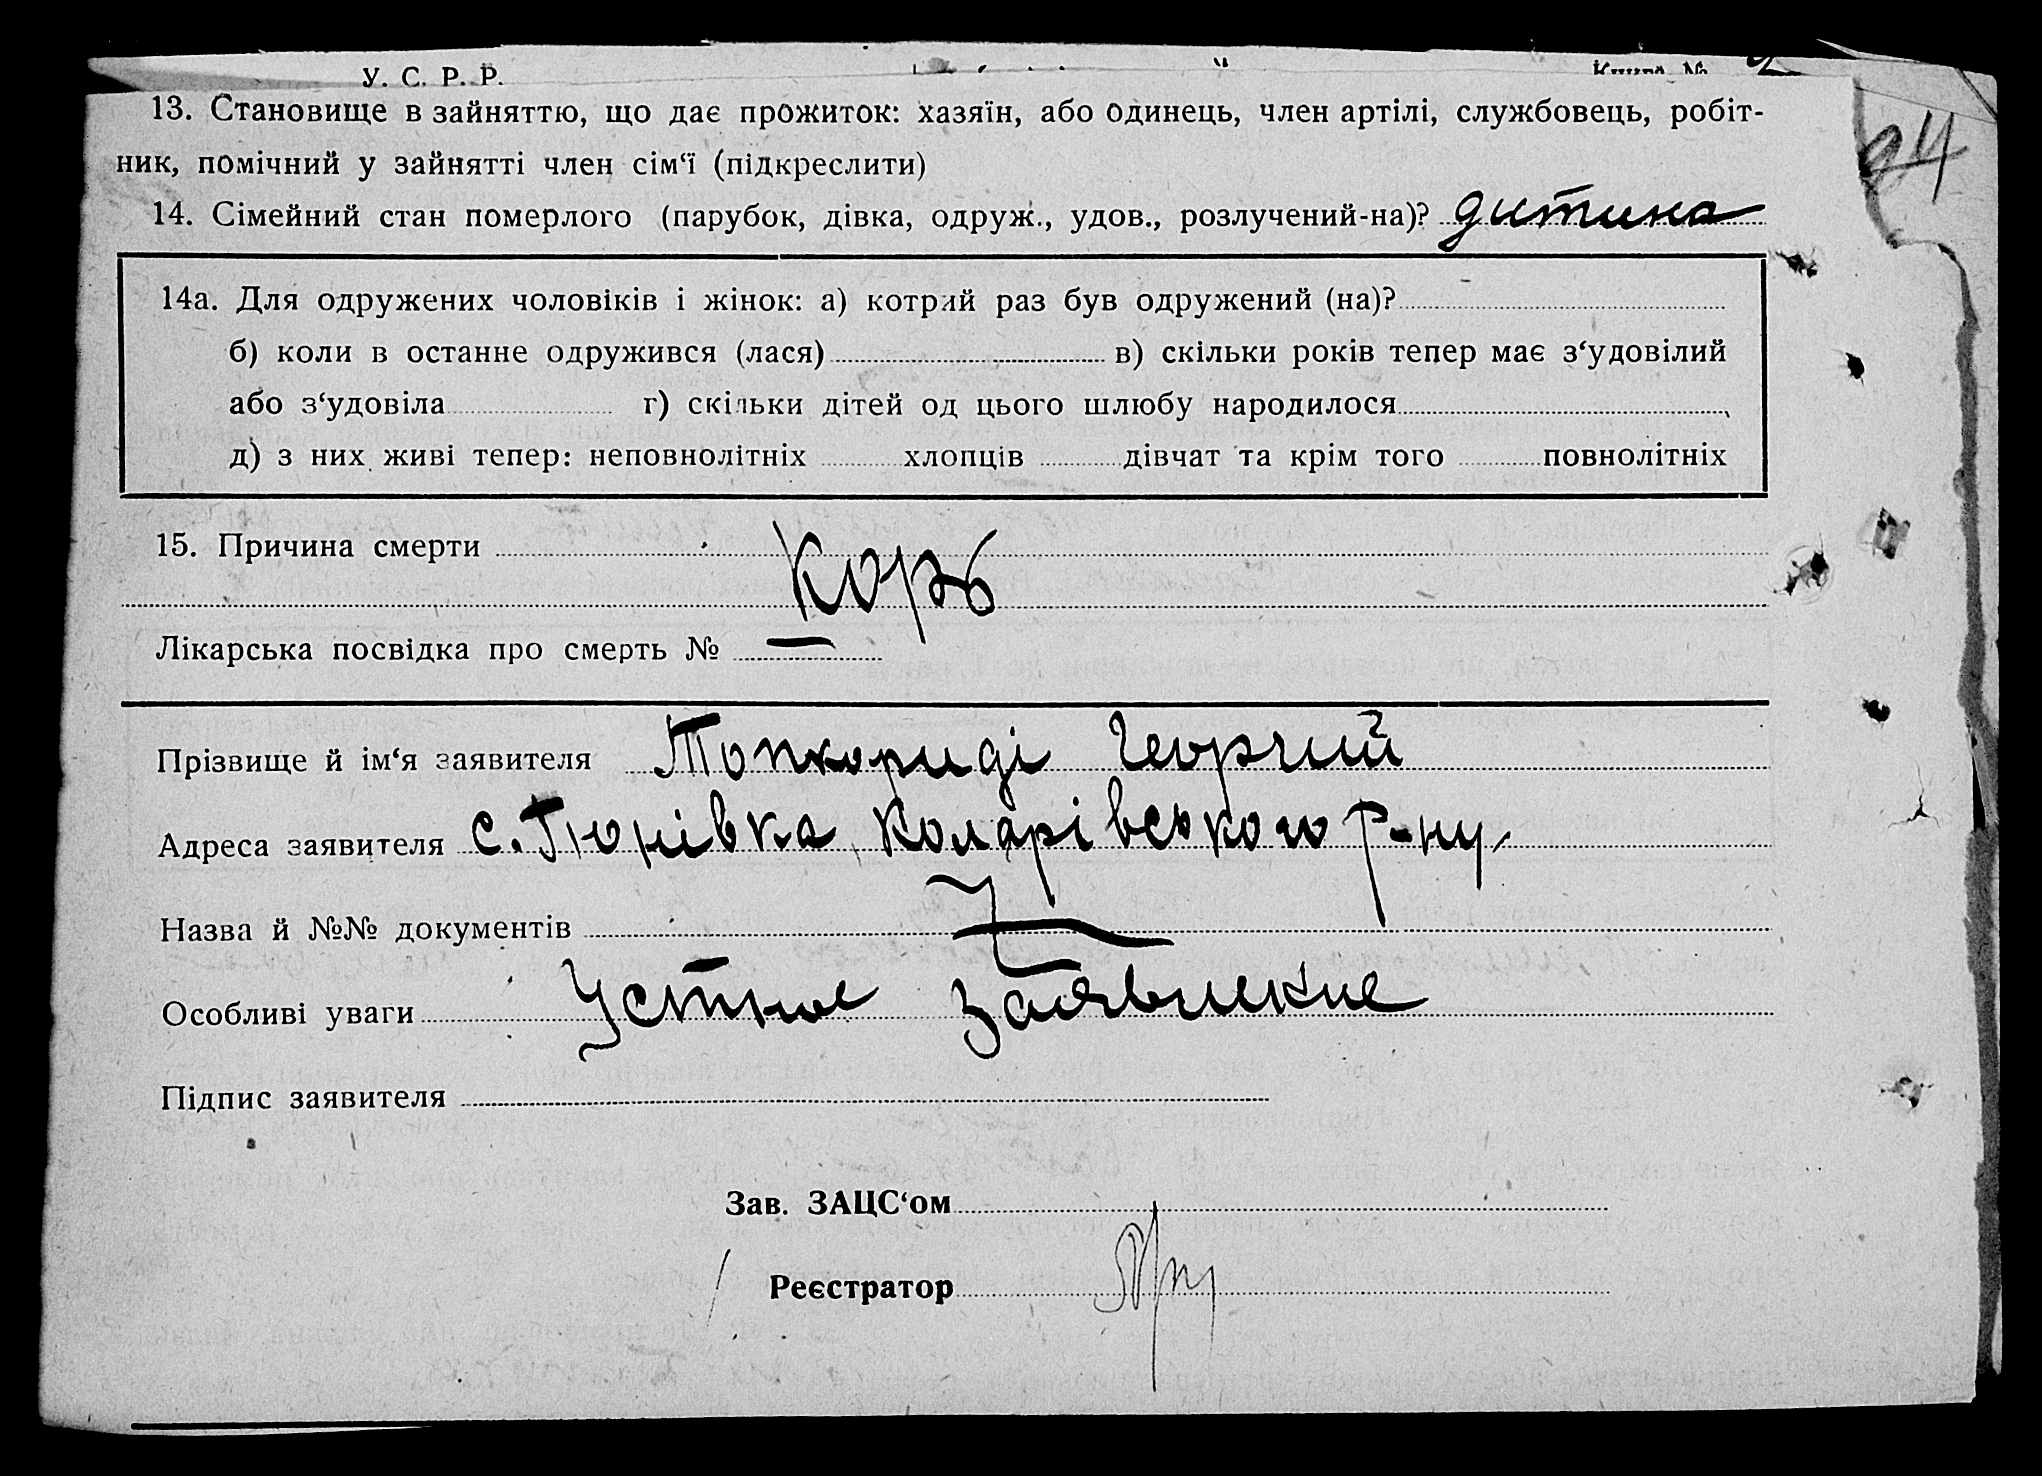 У. С. Р. Р.
Книга № 2
94
13. Становище в зайняттю, що дає прожиток: хазяїн, або одинець, член артілі, службовець, робіт-
ник, помічний у зайнятті член сім‘ї (підкреслити)
14. Сімейний стан померлого (парубок, дівка, одруж., удов., розлучений-на)? дитина
14а. Для одружених чоловіків і жінок: а) котрий раз був одружений (на)?
б) коли в останне одружився (лася) в) скільки років тепер має з‘удовілий
або з‘удовіла г) скільки дітей од цього шлюбу народилося,
д) з них живі тепер: неповнолітніх хлопців дівчат та крім того повнолітніх
15. Причина смерти Корь
Лікарська посвідка про смерть № —
Прізвище й ім‘я заявителя Топхориді Георгий
Адреса заявителя с. Гюнівка, Коларівського р-ну,
Назва й №№ документів
Особливі уваги Устное заявление
Підпис заявителя
Зав. ЗАЦС‘ом
Реєстратор